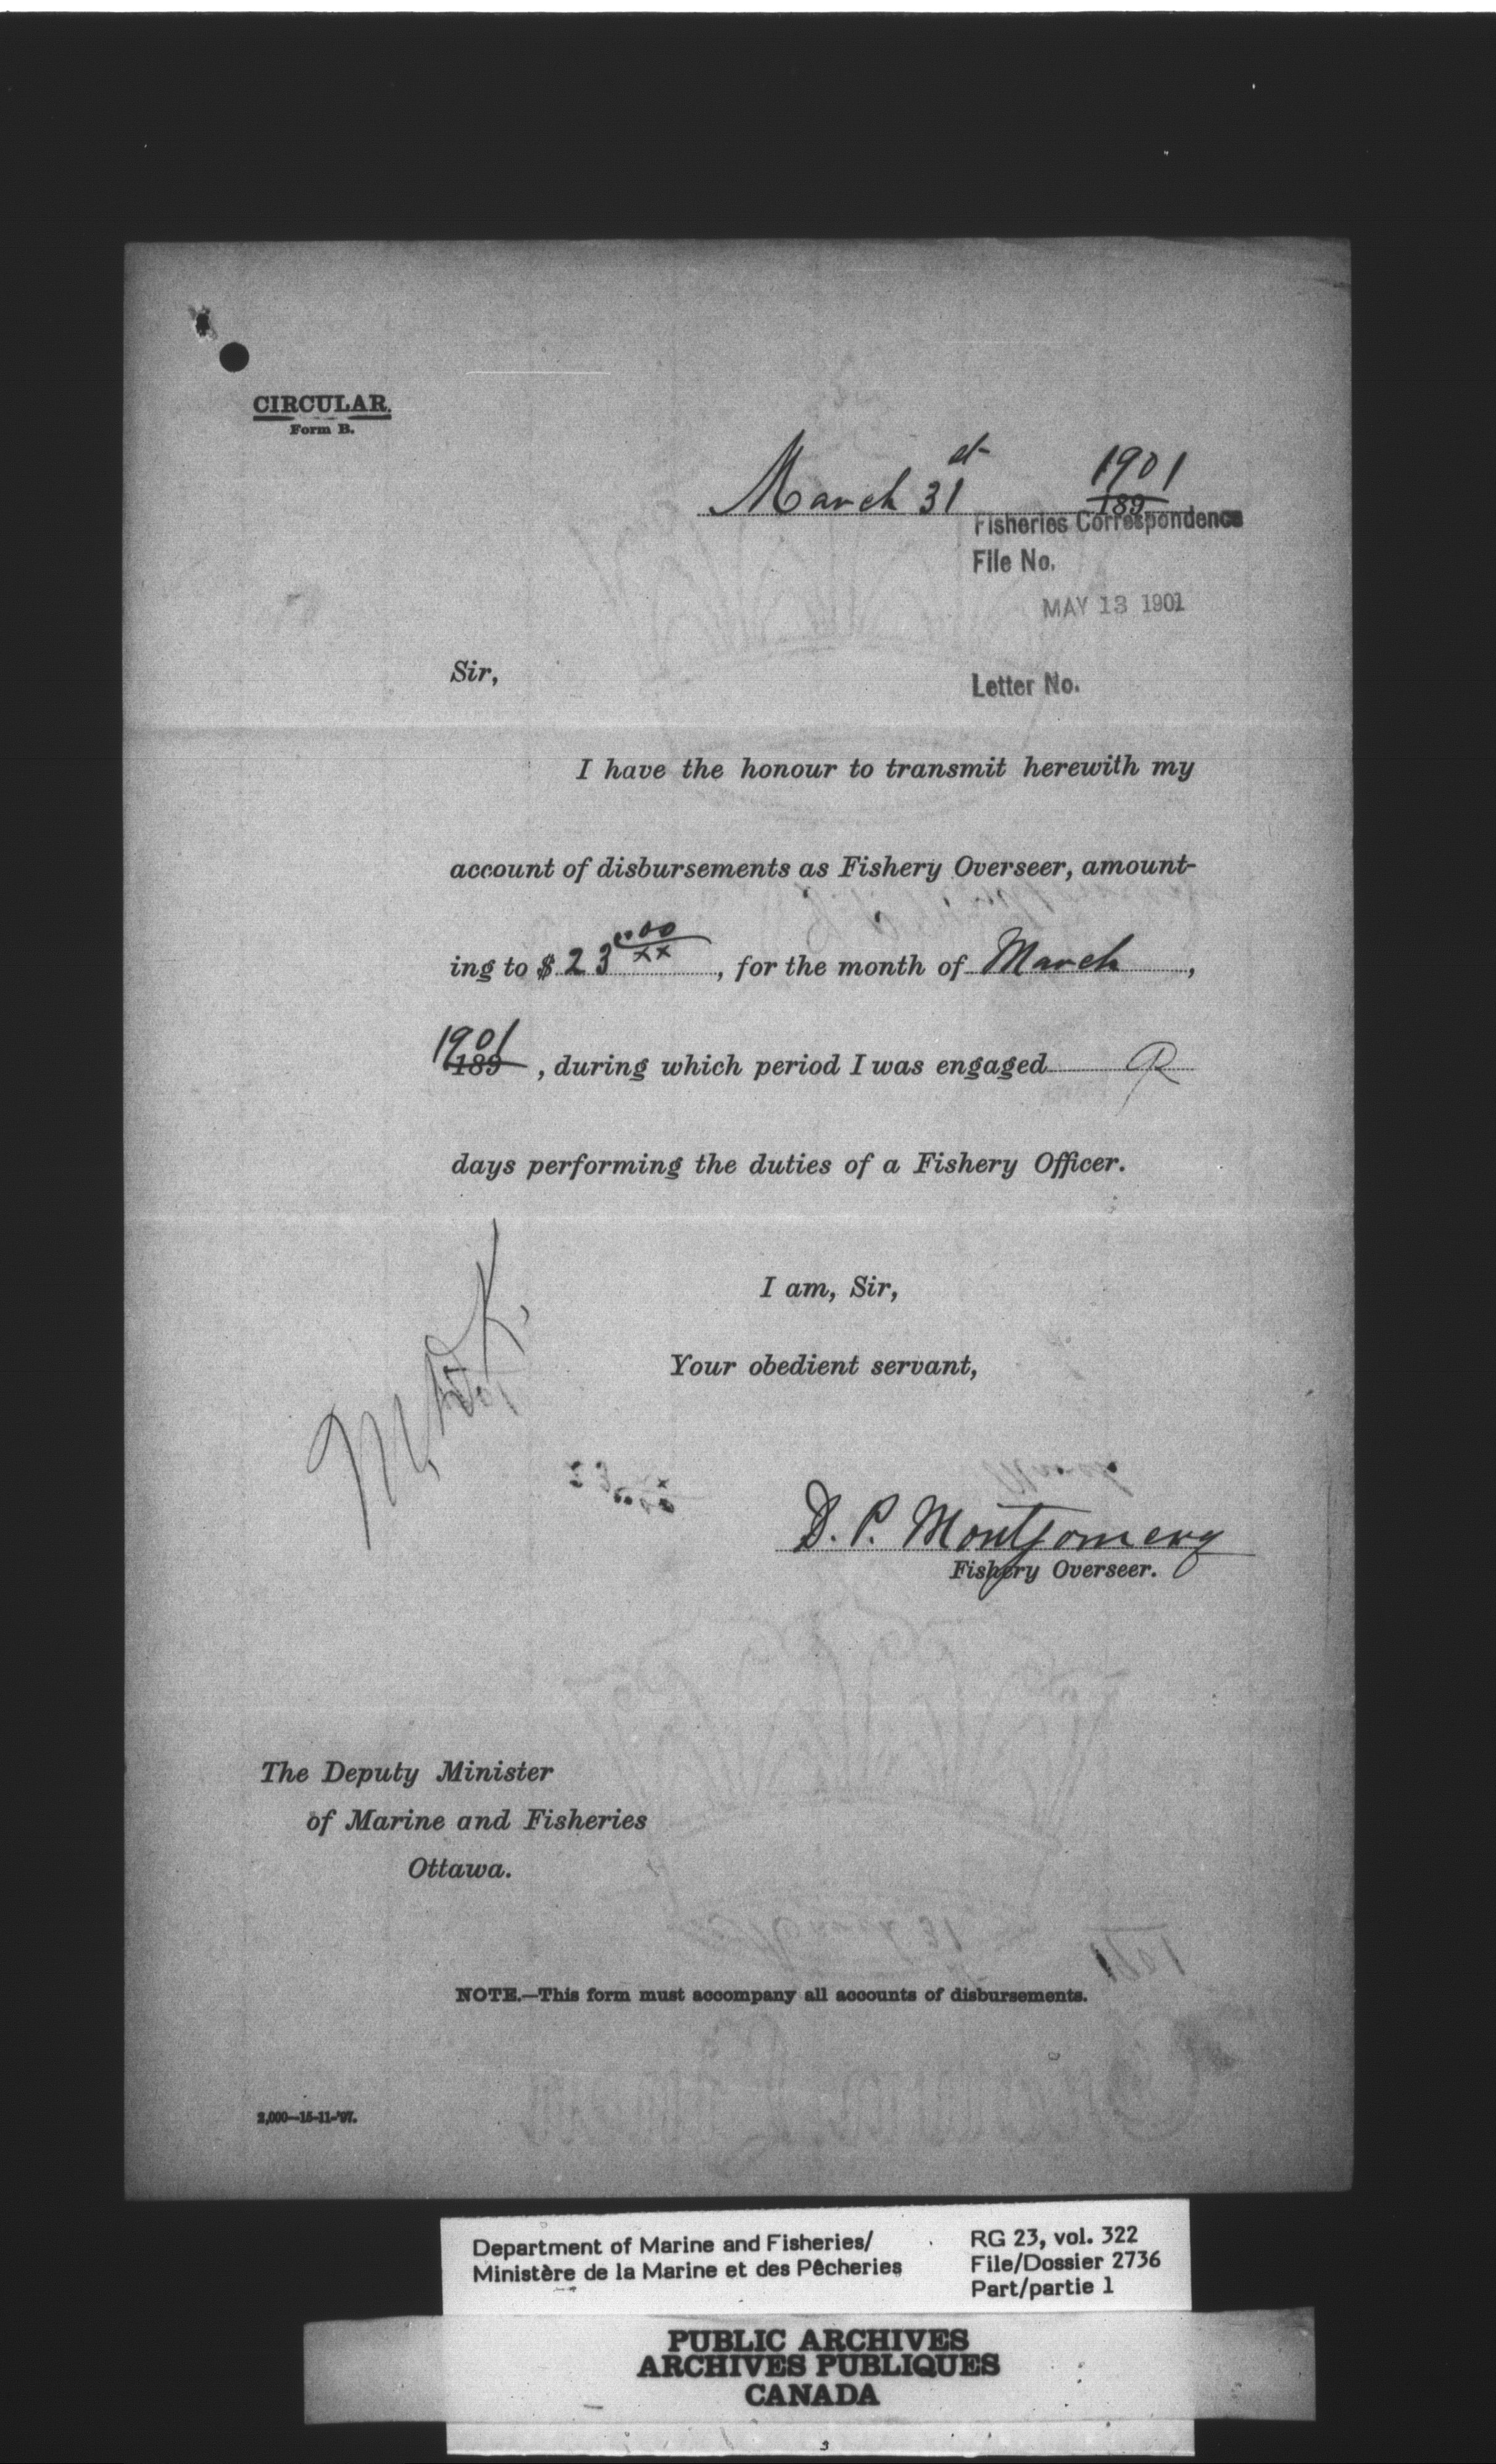 CIRCULAR.
Form B.
March 31st 1901
189
Fisheries Correspondence
File No.
MAY 13 1901
Sir,
Letter No.
I have the honour to transmit herewith my
account of disbursements as Fishery Overseer, amount-
ing to $ 23 00/xx, for the month of March,
1901
189 , during which period I was engaged
days performing the duties of a Fishery Officer.
I am, Sir,
Your obedient servant,
D. P. Montgomery
Fishery Overseer.
The Deputy Minister
of Marine and Fisheries
Ottawa.
NOTE.—This form must accompany all accounts of disbursements.
2,000—15-11-'97.
Department of Marine and Fisheries/
Ministère de la Marine et des Pêcheries
RG 23, vol. 322
File/Dossier 2736
Part/partie 1
PUBLIC ARCHIVES
ARCHIVES PUBLIQUES
CANADA